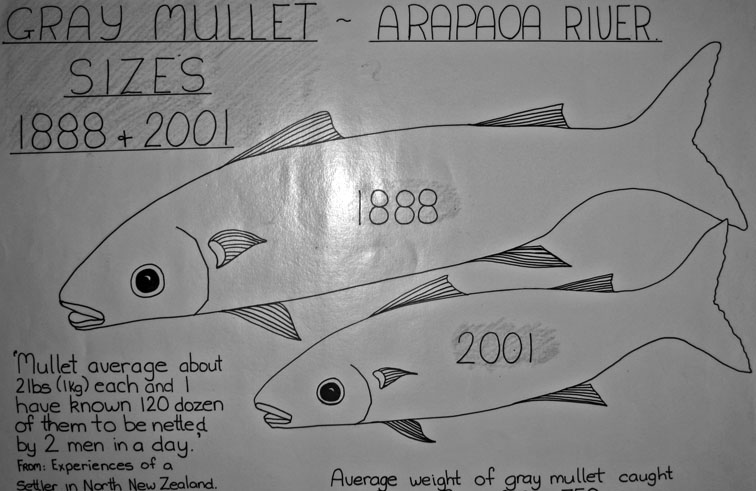 GRAY MULLET ~ ARAPAOA RIVER.
SIZES
1888 + 2001
1888
2001
'Mullet average about
2lbs (1kg) each and I
have known 120 dozen
of them to be netted
by 2 men in a day.'
From: Experiences of a
Settler in North New Zealand.
Average weight of gray mullet caught